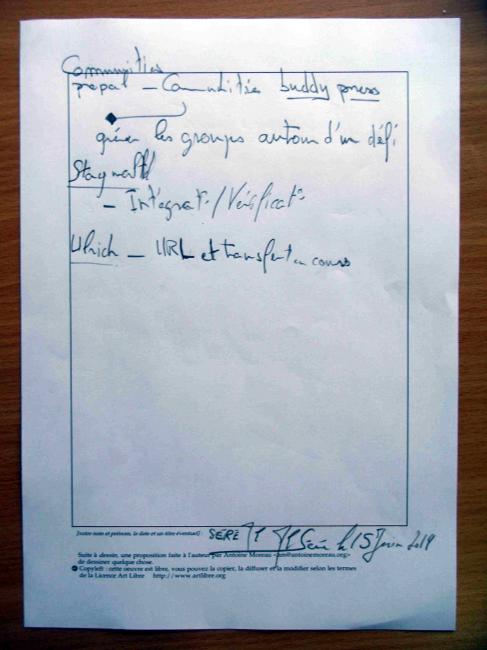 Communities
prepat — Communities buddy press
gérer les groupes autour d'un défi
— Intégrat°/Vérificat°
Ulrich — URL et transfert en cours
[votre nom et prénom, la date et un titre éventuel] : SERE le 15 2019
Suite à dessin, une proposition faite à l'auteur par Antoine Moreau <am@antoinemoreau.org>
de dessiner quelque chose.
Copyleft : cette oeuvre est libre, vous pouvez la copier, la diffuser et la modifier selon les termes
de la Licence Art Libre http://www.artlibre.org